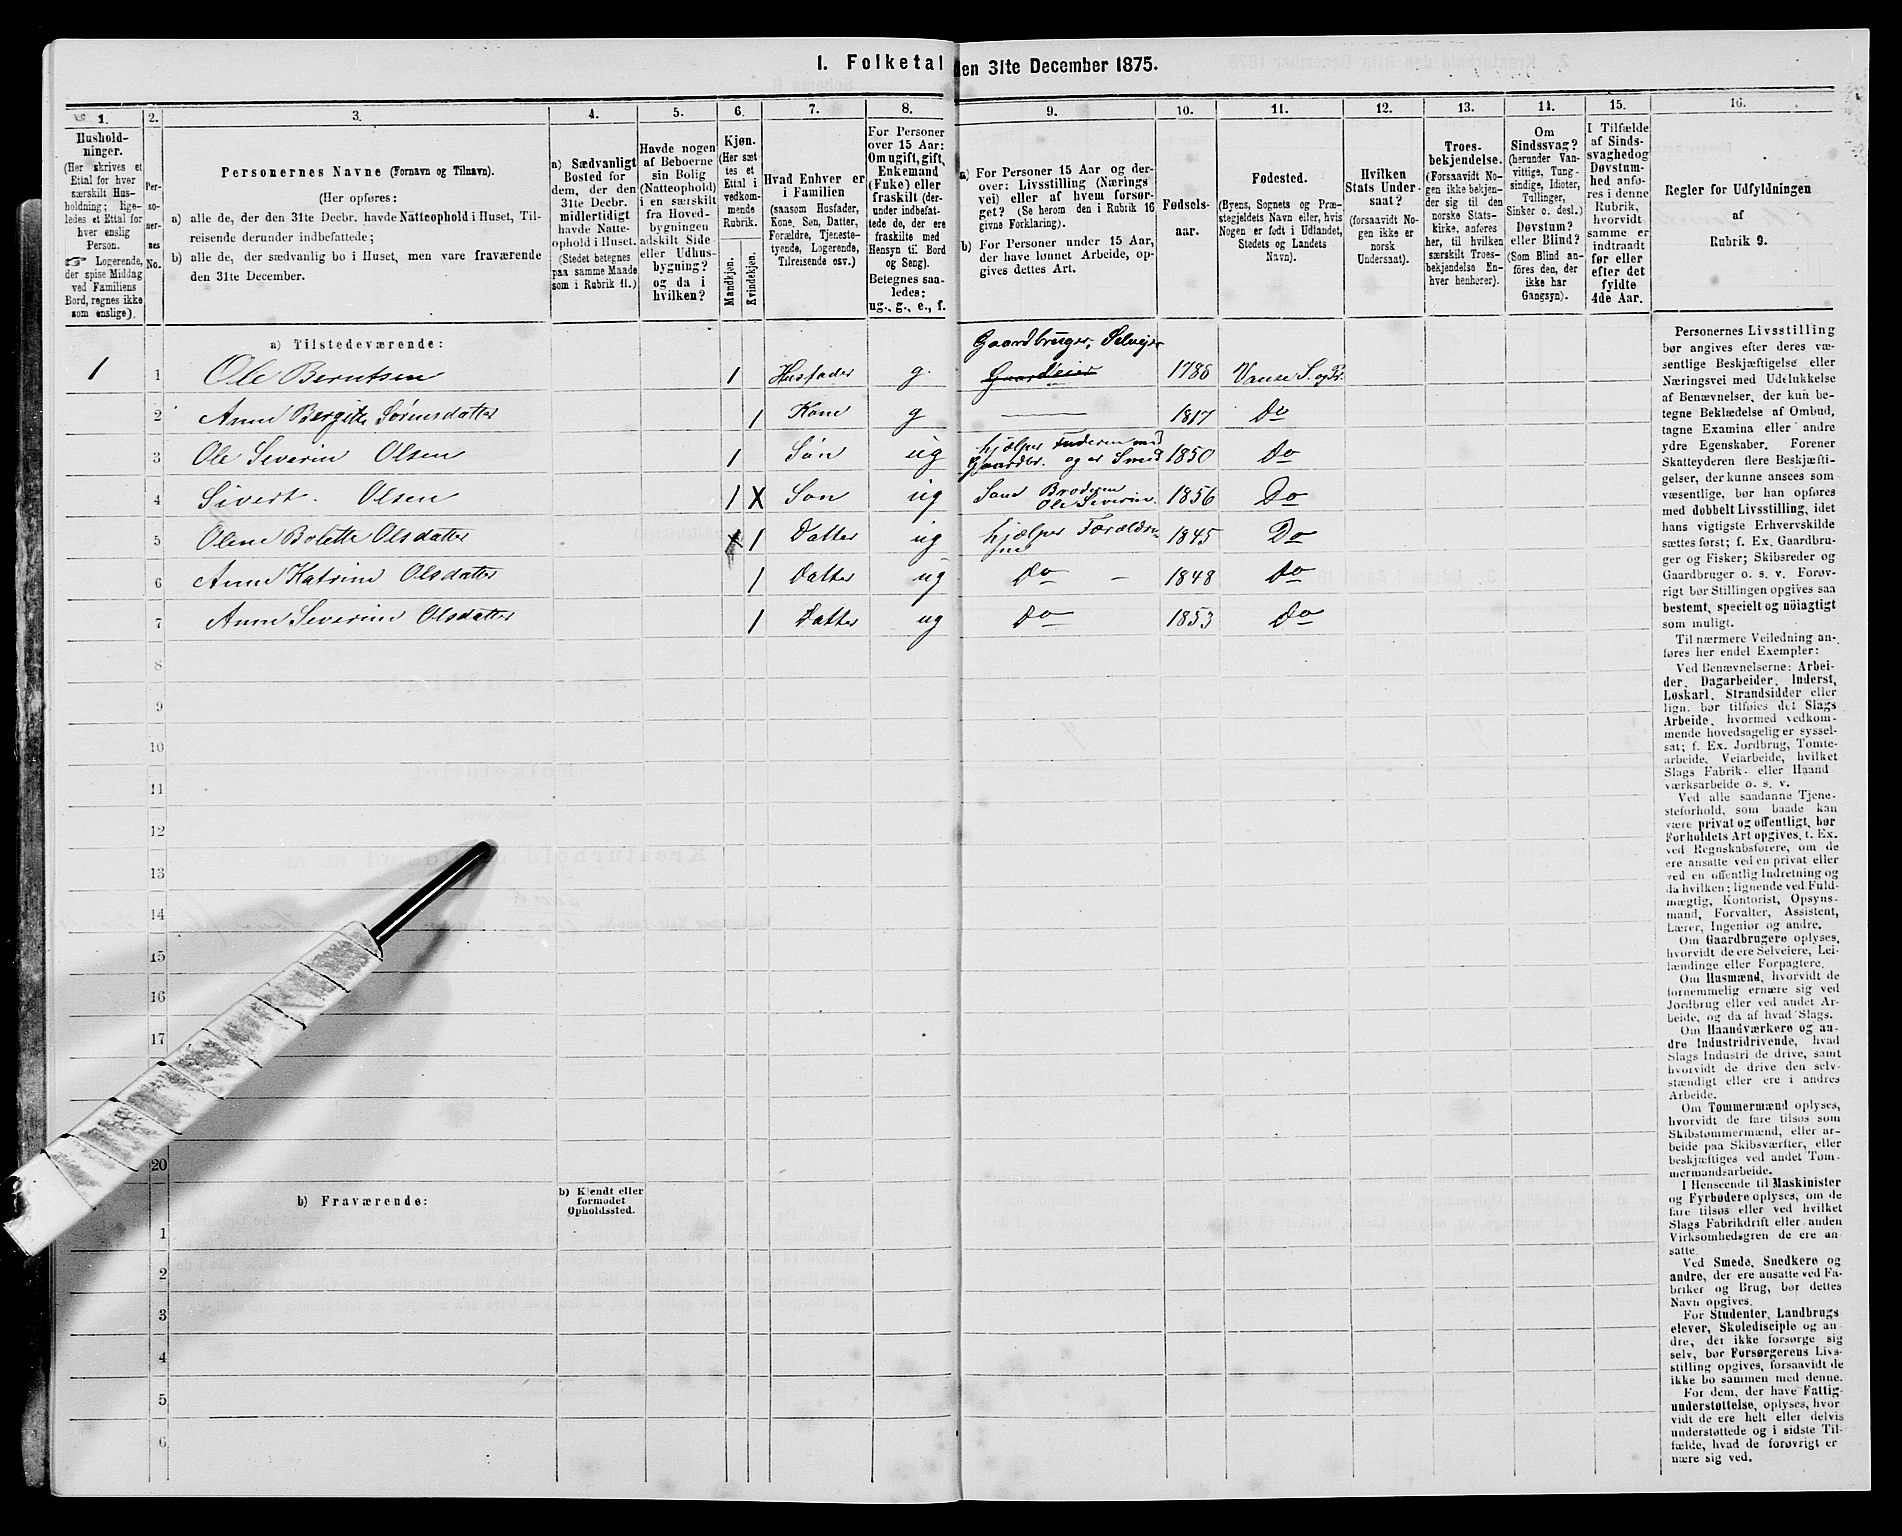 1. Folketal den 31te December 1875.
1.
Hushold-
ninger.
(Her skrives et
Ettal for hver
særskilt Hus-
holdning; lige-
ledes et Ettal for
hver enslig
Person.
☞ Logerende,
der spise Middag
ved Familiens
Bord, regnes ikke
som enslige).
2.
Per-
so-
ner-
nes
No.
3.
Personernes Navne (Fornavn og Tilnavn).
(Her opføres:
a) alle de, der den 31te Decbr. havde Natteophold i Huset, Til-
reisende derunder indbefattede;
b) alle de, der sædvanlig bo i Huset, men vare fraværende
den 31te December.
4.
a) Sædvanligt
Bosted for
dem, der den
31te Decbr.
midlertidigt
havde Natte-
ophold i Huset.
(Stedet betegnes
paa samme Maade
som i Rubrik 11.)
5.
Havde nogen
af Beboerne
sin Bolig
(Natteophold)
i en særskilt
fra Hoved-
bygningen
adskilt Side-
eller Udhus-
bygning?
og da i
hvilken?
6.
Kjøn.
(Her sæt-
tes et
Ettal i
vedkom-
mende
Rubrik.
Mandkjøn.
Kvindekjøn.
7.
Hvad Enhver er
i Familien
(saasom Husfader,
Kone, Søn, Datter,
Forældre, Tjeneste-
tyende, Logerende,
Tilreisende osv.)
8.
For Personer
over 15 Aar:
Om ugift, gift,
Enkemand
(Enke) eller
fraskilt (der-
under indbefat-
tede de, der ere
fraskilte med
Hensyn til Bord
og Seng).
Betegnes saa-
ledes:
ug., g., e., f.
9.
a) For Personer 15 Aar og der-
over: Livsstilling (Nærings-
vei) eller af hvem forsør-
get? (Se herom den i Rubrik 16
givne Forklaring).
b) For Personer under 15 Aar,
der have lønnet Arbeide, op-
gives dettes Art.
10.
Fødsels-
aar.
11.
Fødested.
(Byens, Sognets og Præ-
stegjeldets Navn eller, hvis
Nogen er født i Udlandet,
Stedets og Landets
Navn).
12.
Hvilken
Stats Under-
saat?
(forsaavidt No-
gen ikke er
norsk
Undersaat).
13.
Troes-
bekjendelse.
(Forsaavidt No-
gen ikke bekjen-
der sig til den
norske Stats-
kirke, anføres
her, til hvilken
særskilt Troes-
bekjendelse En-
hver henhører).
14.
Om
Sindssvag?
(herunder Van-
vittige, Tung-
sindige, Idioter,
Tullinger,
Sinker o. desl.)
Døvstum?
eller Blind?
(Som Blind an-
føres den, der
ikke har
Gangsyn).
15.
I Tilfælde
af Sinds-
svaghed og
Døvstum-
hed anfø-
res i denne
Rubrik,
hvorvidt
samme er
indtraadt
før eller
efter det
fyldte
4de Aar.
16.
Regler for Udfyldningen
af
Rubrik 9.
a) Tilstedeværende:
Gaardbruger, Selveier
1 1 Ole Berntsen 1 Husfader g. Gaardeier 1786 Vanse S. og Pr.
2 Anne Bergite Sørensdatter 1 Kone g 1817 Do
3 Ole Severin Olsen 1 Søn ug hjælper Faderen med Gaardbr. og er Smed 1850 Do
4 Sivert Olsen 1 X Søn ug Som Broderen Ole Severin. 1856 Do
5 Olene Bolette Olsdatter x 1 Datter ug hjælper Forældrene 1845 Do
6 Anne Katrine Olsdatter 1 Datter ug Do 1848 Do
7 Anne Severine Olsdatter 1 Datter ug Do 1853 Do
8
9
10
11
12
13
14
15
16
17
20
b) Fraværende:
b) Kjendt eller
formodet
Opholdssted.
1
2
3
4
5
6
Personernes Livsstilling
bør angives efter deres væ-
sentlige Beskjæftigelse eller
Næringsvei med Udelukkelse
af Benævnelser, der kun be-
tegne Beklædelse af Ombud,
tagne Examina eller andre
ydre Egenskaber. Forener
Skatteyderen flere Beskjæfti-
gelser, der kunne ansees som
væsentlige, bør han opføres
med dobbelt Livsstilling, idet
hans vigtigste Erhvervskilde
sættes først; f. Ex. Gaardbru-
ger og Fisker; Skibsreder og
Gaardbruger o. s. v. Forøv-
rigt bør Stillingen opgives saa
bestemt, specielt og nöiagtigt
som muligt.
Til nærmere Veiledning an-
føres her endel Exempler:
Ved Benævnelserne: Arbei-
der, Dagarbeider, Inderst,
Løskarl, Strandsidder eller
lign. bør tilføies det Slags
Arbeide, hvormed vedkom-
mende hovedsagelig er syssel-
sat; f. Ex. Jordbrug, Tomte-
arbeide, Veiarbeide, hvilket
Slags Fabrik- eller Haand-
værksarbeide o. s. v.
Ved alle saadanne Tjene-
steforhold, som baade kan
være privat og offentligt, bør
Forholdets Art opgives, t. Ex.
ved Regnskabsførere, om de
ere ansatte ved en privat eller
ved en offentlig Indretning og
da hvilken; lignende ved Fuld-
mægtig, Kontorist, Opsyns-
mand, Forvalter, Assistent,
Lærer, Ingeniør og andre.
Om Gaardbrugere oplyses,
hvorvidt de ere Selveiere, Lei-
lændinge eller Forpagtere.
Om Husmænd, hvorvidt de
fornemmelig ernære sig ved
Jordbrug eller ved andet Ar-
beide, og da af hvad Slags.
Om Haandværkere og an-
dre Industridrivende, hvad
Slags Industri de drive, samt
hvorvidt de drive den selv-
stændigt eller ere i andres
Arbeide.
Om Tømmermænd oplyses,
hvorvidt de fare tilsøs som
Skibstømmermænd, eller ar-
beide paa Skibsværfter, eller
beskjæftiges ved andet Tøm-
mermandsarbeide.
I Henseende til Maskinister
og Fyrbødere oplyses, om de
fare tilsøs eller ved hvilket
Slags Fabrikdrift eller anden
Virksomhedsgren de ere an-
satte.
Ved Smede, Snedkere og
andre, der ere ansatte ved Fa-
briker og Brug, bør dettes
Navn opgives.
For Studenter, Landbrugs-
elever, Skoledisciple og an-
dre, det ikke forsørge sig
selv, bør Forsørgerens Livs-
stilling opgives, forsaavidt de
ikke bo sammen med denne.
For dem, der have Fattig-
understøttelse, oplyses, hvor-
vidt de ere helt eller delvis
understøttede og i sidste Til-
fælde, hvad de forøvrigt er-
nære sig ved.